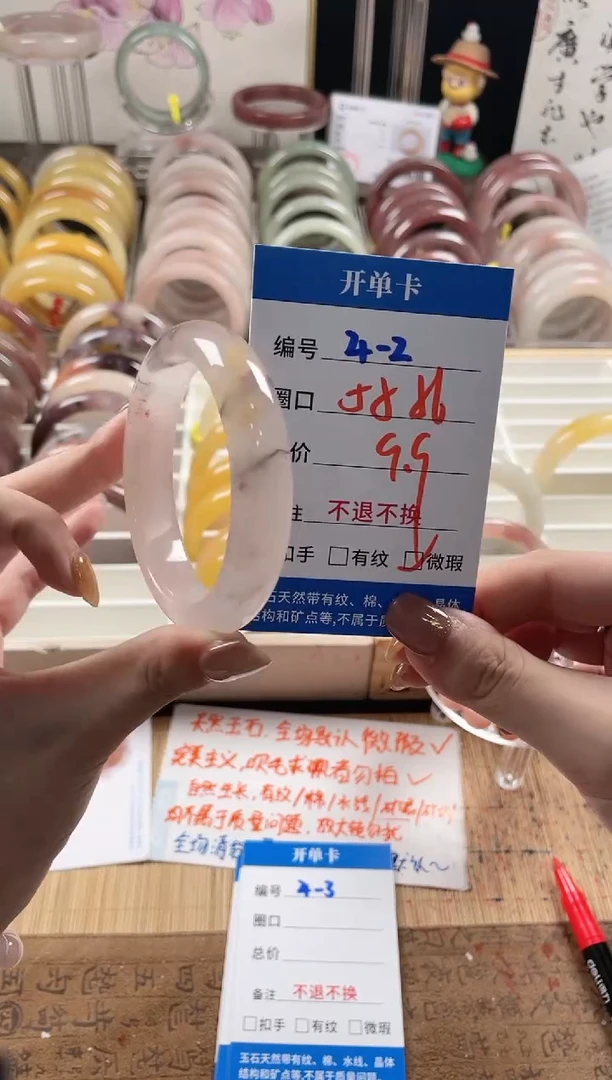 开单卡
编号 4-2
圈口 58
价 9.9
注 不退不换
扣手 □有纹 □微瑕
石天然带有纹、棉、
结构和矿点等,不属于
天然玉石,全场默认微瑕✓
完美主义,吹毛求疵者勿拍✓
自然生长,有纹/棉/水线/
均不属于质量问题.放大镜勿扰
全场
开单卡
编号 4-3
圈口
总价
备注 不退不换
□扣手 □有纹 □微瑕
玉石天然带有纹、棉、水线、晶体
结构和矿点等,不属于质量问题。
deli得力